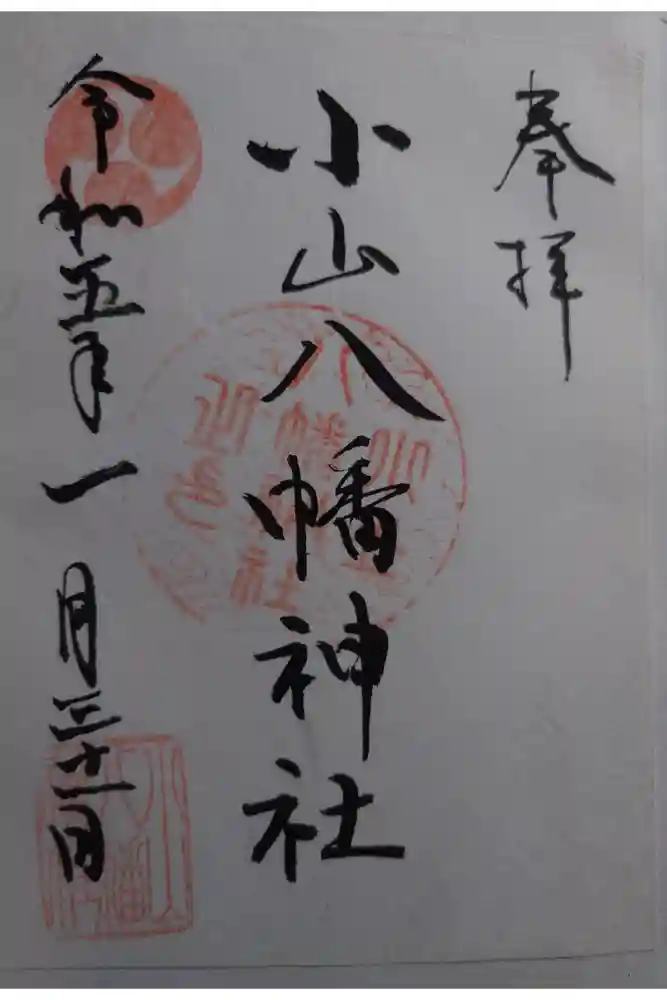 奉拝
小山八幡神社
令和五年一月三十一日